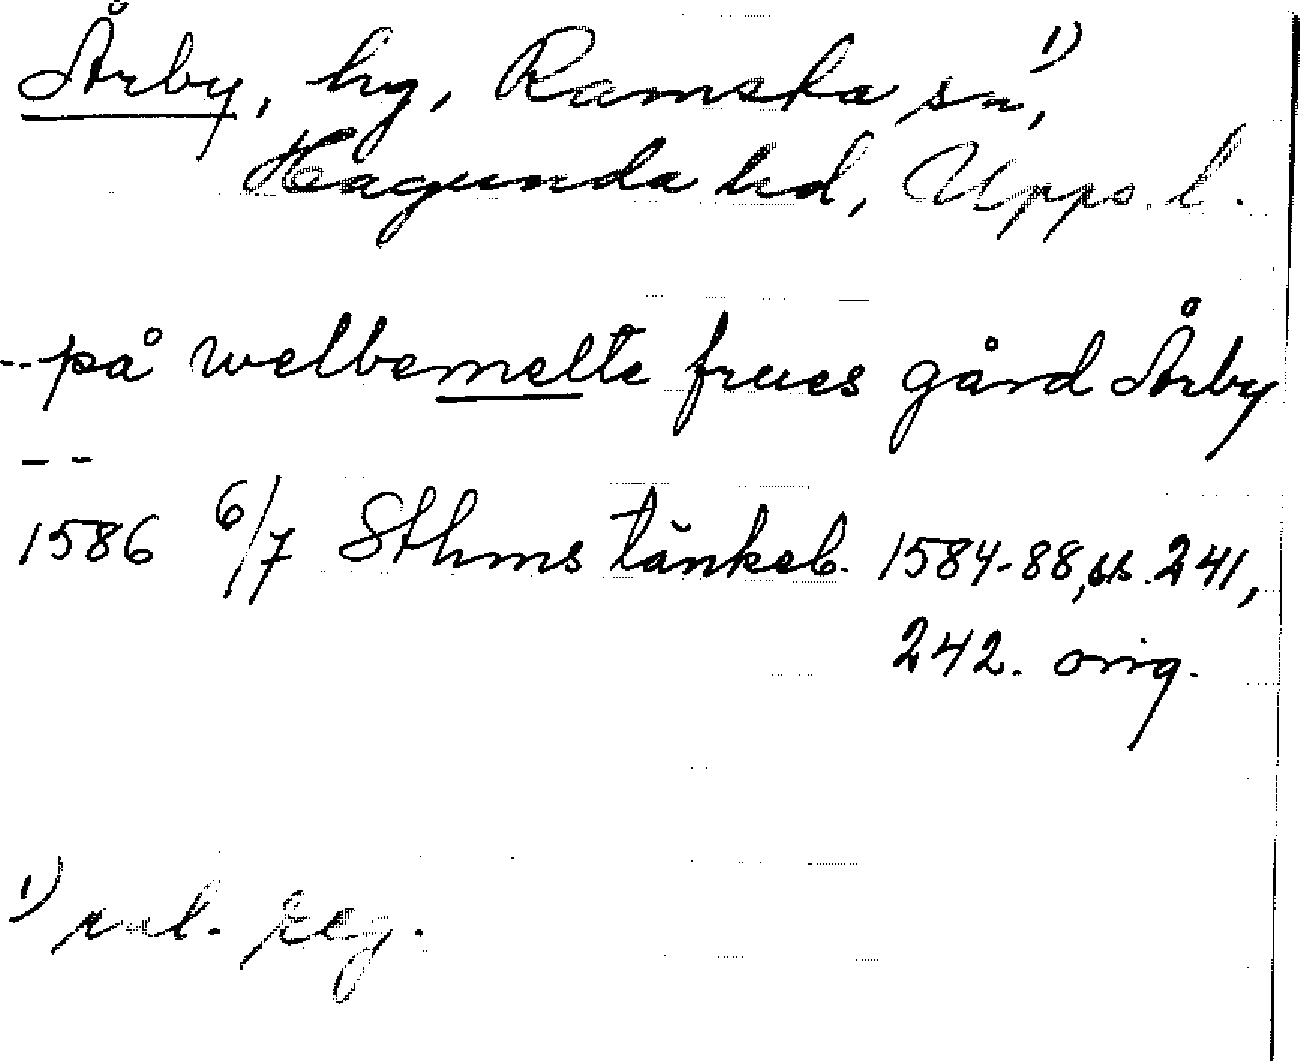 Årby, hg, Ramsta sn,¹⁾
Hagunda hd, Upps. l.
-- på welbemelte frues gård Årby
--
1586 6/7 Sthms tänkeb. 1584-88, ss. 241,
242. orig.
¹⁾ enl. reg.